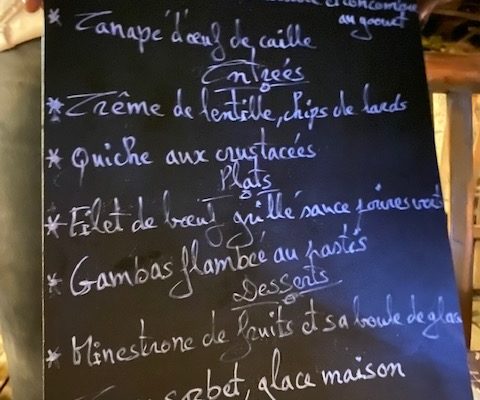 et concombre
au yaourt
* Canapé d'œuf de caille
Entrées
* Crême de lentille, chips de lards
* Quiche aux crustacées
Plats
* Filet de bœuf grillé sauce poivre vert
* Gambas flambée au pastis
Desserts
* Minestrone de fruits et sa boule de glace
sorbet, glace maison